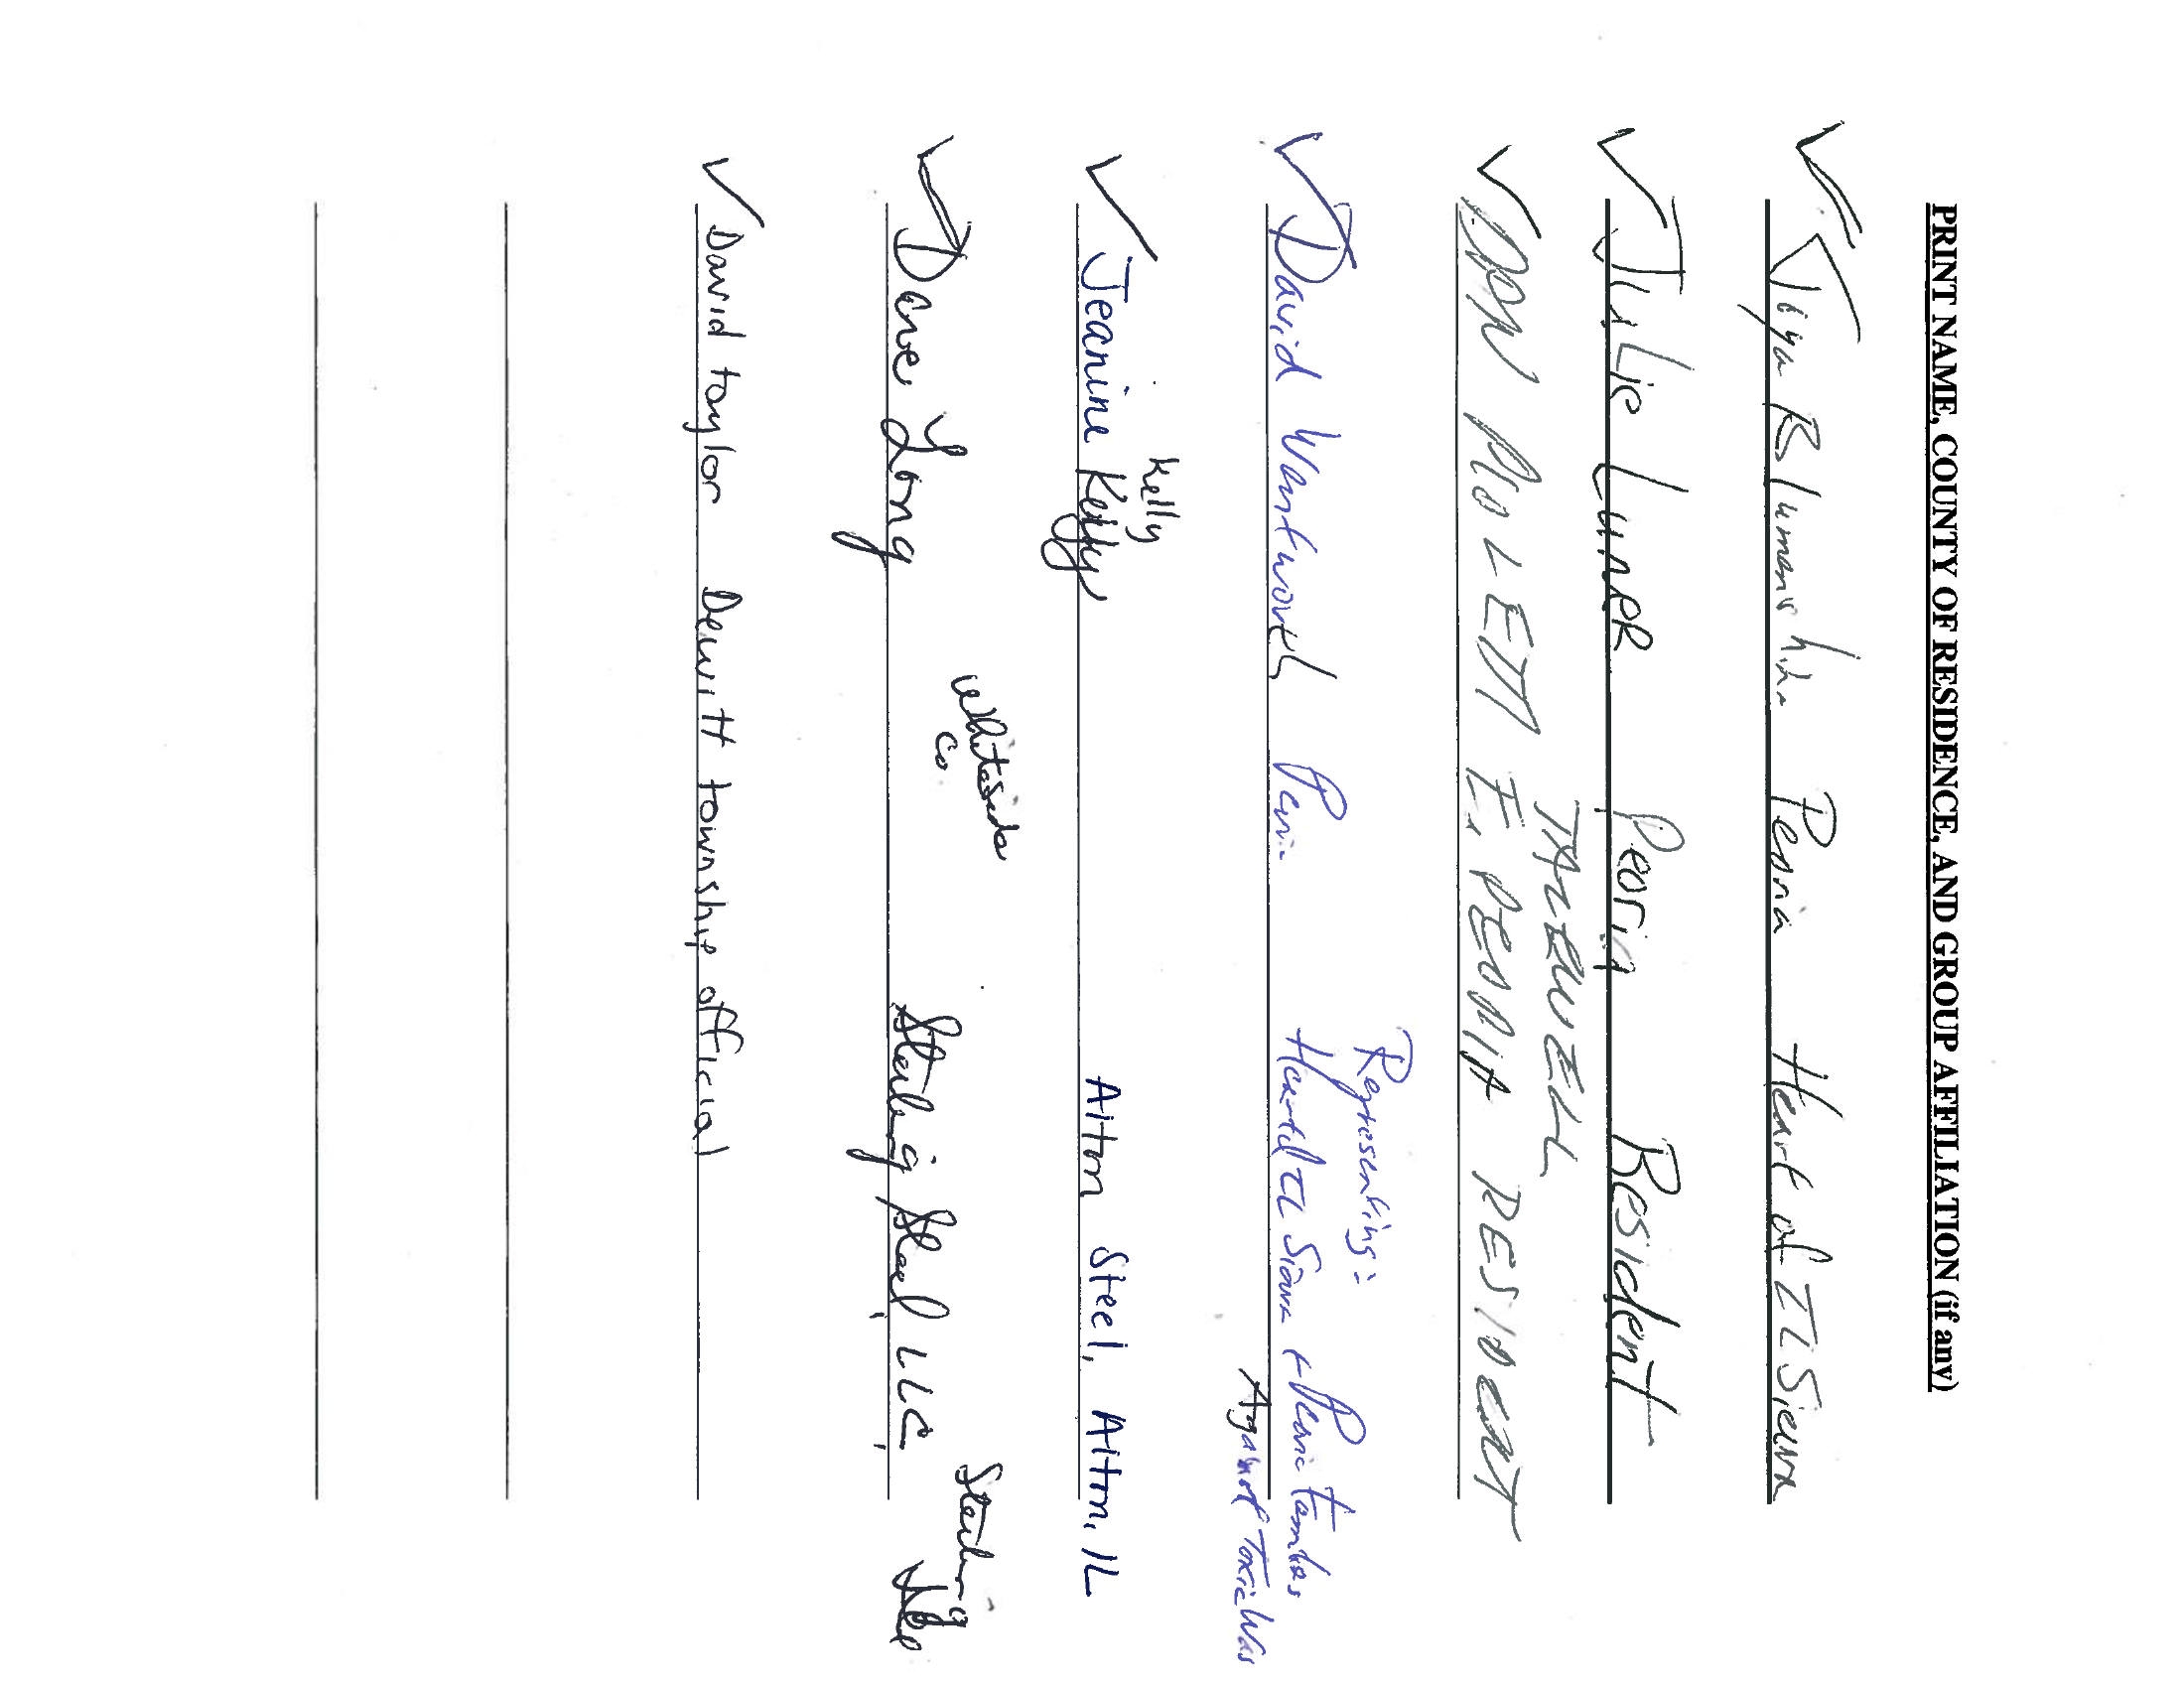 PRINT NAME, COUNTY OF RESIDENCE, AND GROUP AFFILIATION (if any)
Joyce Blumenshine Peoria Heart of IL Sierra
JuLie LuneR Peoria Resident
TAZEWELL
E. PEORIA RESIDENT
Representing:
David Wentworth Peoria Heart of IL Sierra + Peoria Families
Against Toxic Was
Kelly
Jeanine Kelly Alton Steel, Alton, IL
Whiteside
Co. Sterling
Dave Long Sterling Steel LLC
David taylor Dewitt township official